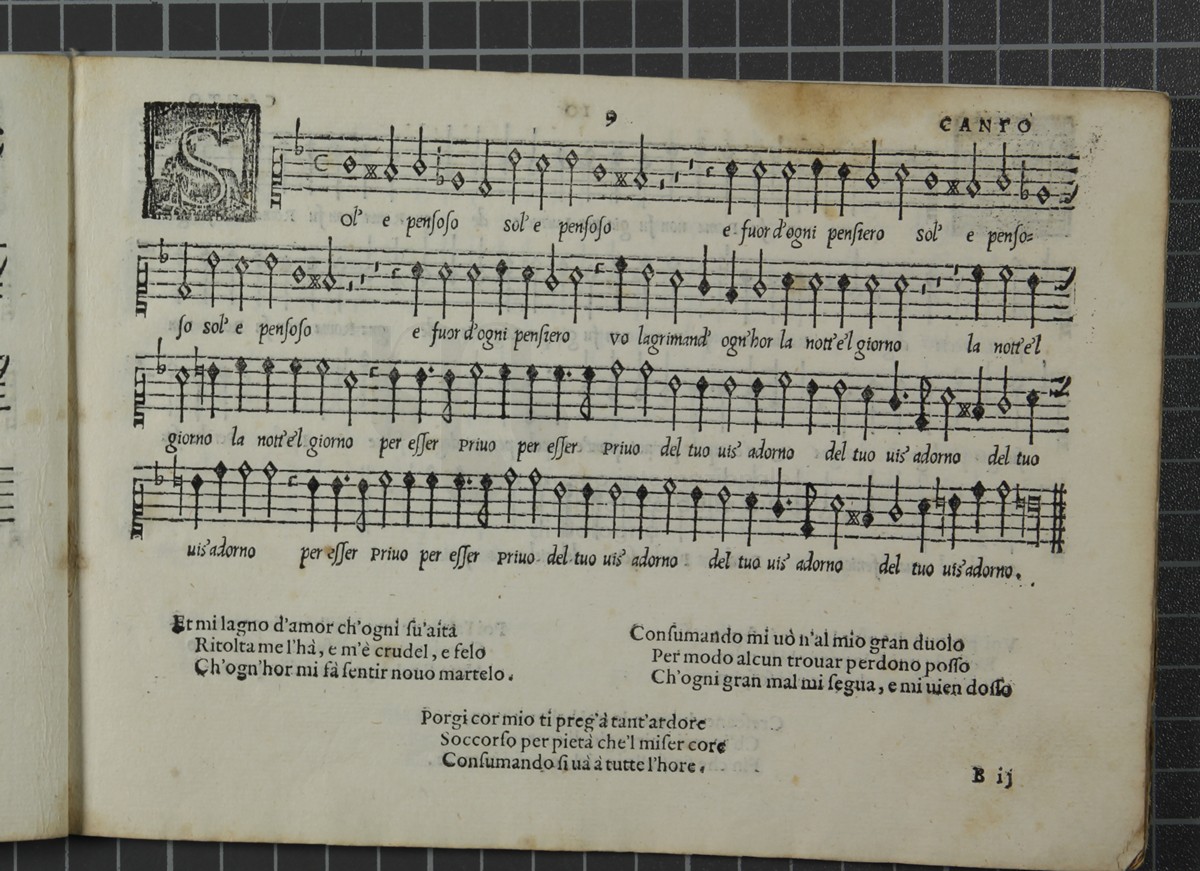 9
CANTO
SOl' e pensoso sol' e pensoso e fuor d'ogni pensiero sol' e penso=
so sol' e pensoso e fuor d'ogni pensiero vo lagrimand' ogn'hor la nott'e'l giorno la nott'e'l
giorno la nott'e'l giorno per esser priuo per esser priuo del tuo uis' adorno del tuo uis' adorno del tuo
uis' adorno per esser priuo per esser priuo del tuo uis' adorno del tuo uis' adorno del tuo uis' adorno.
Et mi lagno d'amor ch'ogni su'aità
Ritolta me l'hà, e m'è crudel, e felo
Ch'ogn'hor mi fà sentir nouo martelo.
Consumando mi uò n'al mio gran duolo
Per modo alcun trouar perdono posso
Ch'ogni gran mal mi segua, e mi uien dosso
Porgi cor mio ti preg'à tant'ardore
Soccorso per pietà che'l miser core
Consumando si uà à tutte l'hore.
B ij